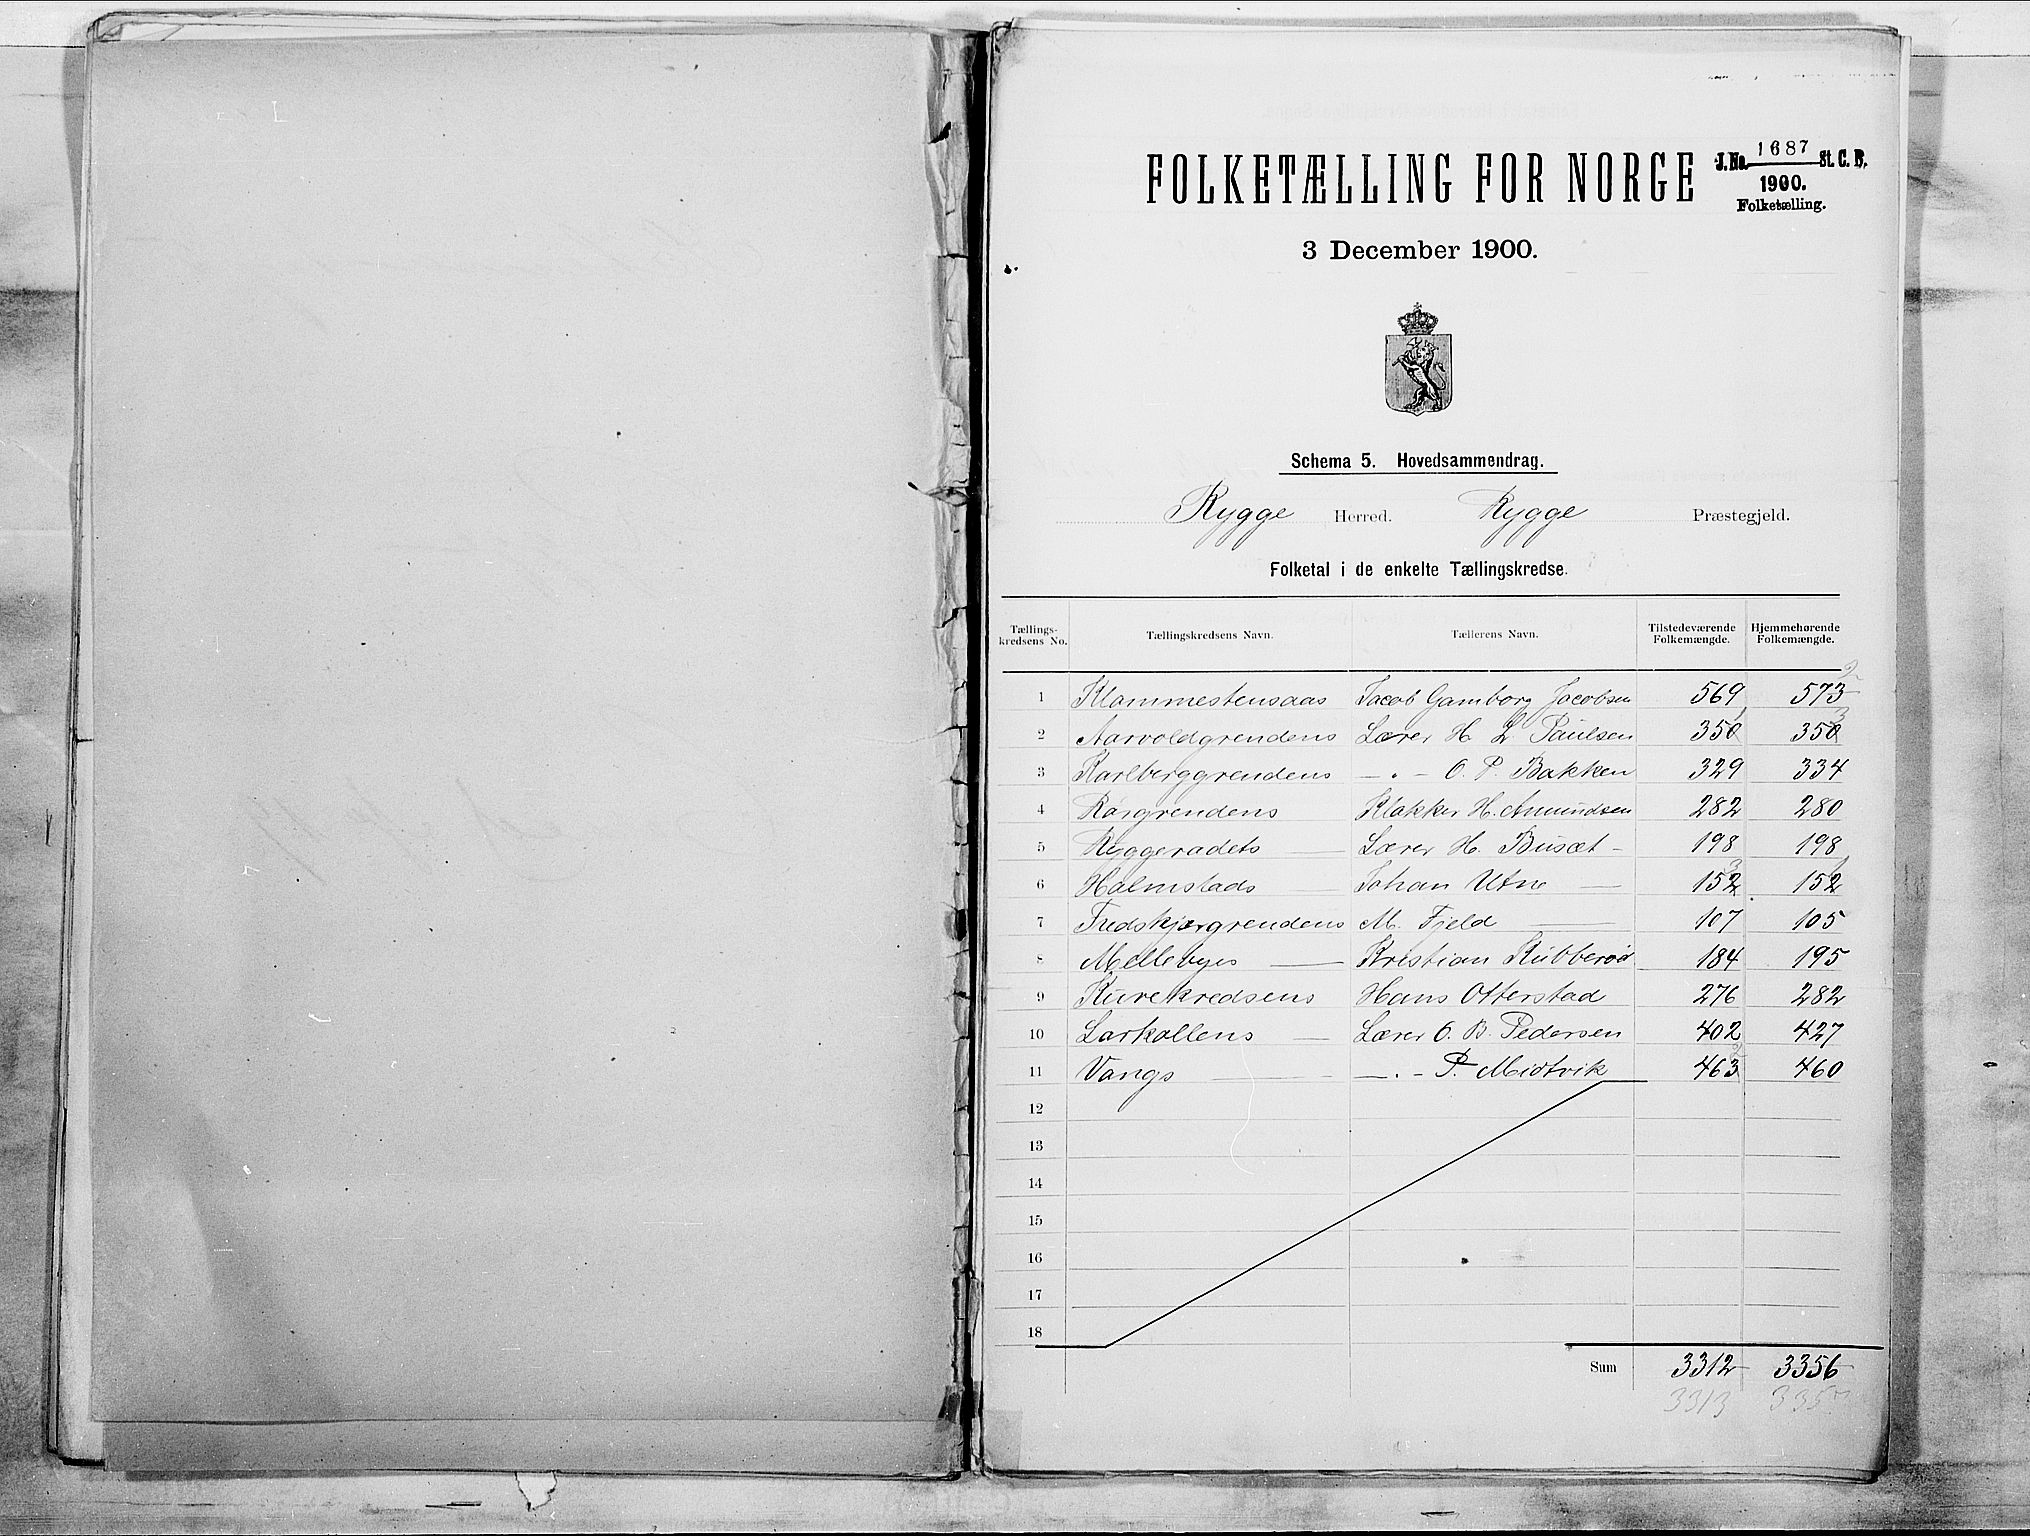 FOLKETÆLLING FOR NORGE
J.No. 1687 St. C. B.
1900.
Folketælling.
3 December 1900.
Schema 5. Hovedsammendrag.
Rygge Herred. Rygge Præstegjeld.
Folketal i de enkelte Tællingskredse.
Tællingskredsens No. Tællingskredsens Navn. Tællerens Navn. Tilstedeværende Folkemængde. Hjemmehørende Folkemængde.
1 Klommestensaas Jacob Gamborg Jacobsen 569 573
2 Aarvoldgrendens Lærer H. L. Paulsen 350 350
3 Karlberggrendens — " — O. P. Bakken 329 334
4 Rörgrendens Klokker H. Amundsen 282 280
5 Ryggeradets — Lærer H. Busæt — 198 198
6 Halmstads — Johan Utne — 152 152
7 Fredskjærgrendens M. Fjeld — 107 105
8 Mellebyes — Kristian Kubberöd 184 195
9 Kurekredsens Hans Otterstad 276 282
10 Larkollens — Lærer O. B. Pedersen 402 427
11 Vangs — — " — P. Midtvik 463 460
12
13
14
15
16
17
18
Sum 3312 3356
3313 335